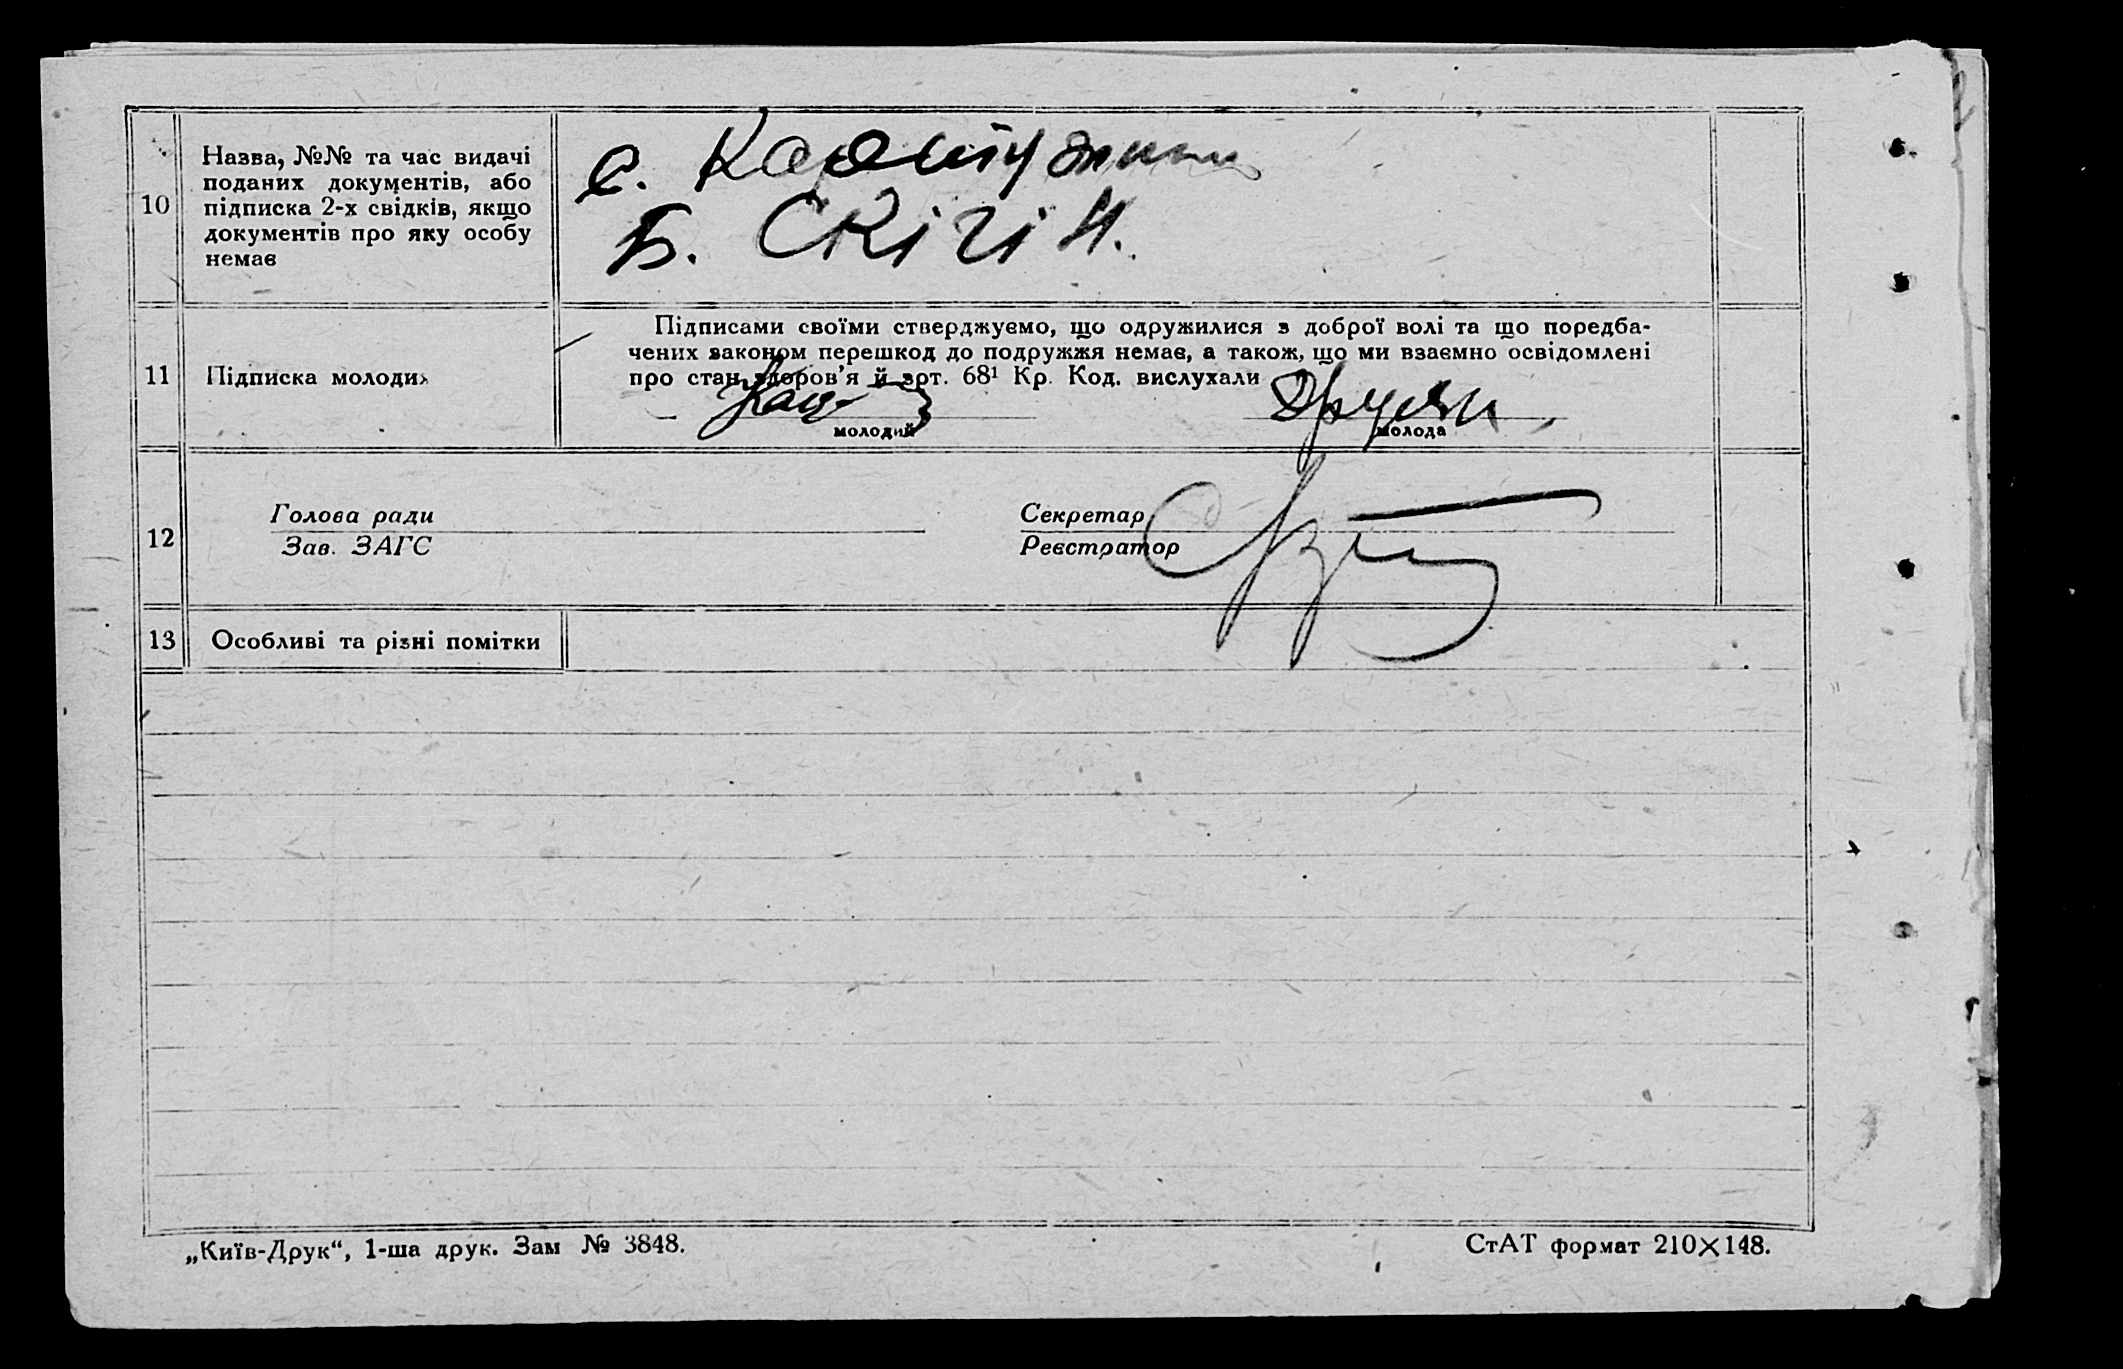 10
Назва, №№ та час видачі
поданих документів, або
підписка 2-х свідків, якщо
документів про яку особу
немає
Б. Скігін.
11
Підписка молодих
Підписами своїми стверджуємо, що одружилися з доброї волі та що поредба-
чених законом перешкод до подружжя немає, а також, що ми взаємно освідомлені
про стан здоров’я й арт. 68¹ Кр. Код. вислухали
молодий
молода
12
Голова ради
Зав. ЗАГС
Секретар
Реєстратор
13
Особливі та різні помітки
„Київ-Друк“, 1-ша друк. Зам № 3848.
СтАТ формат 210×148.